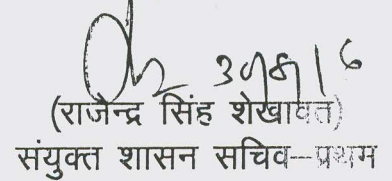 30/8/16
(राजेन्द्र सिंह शेखावत)
संयुक्त शासन सचिव--प्रथम